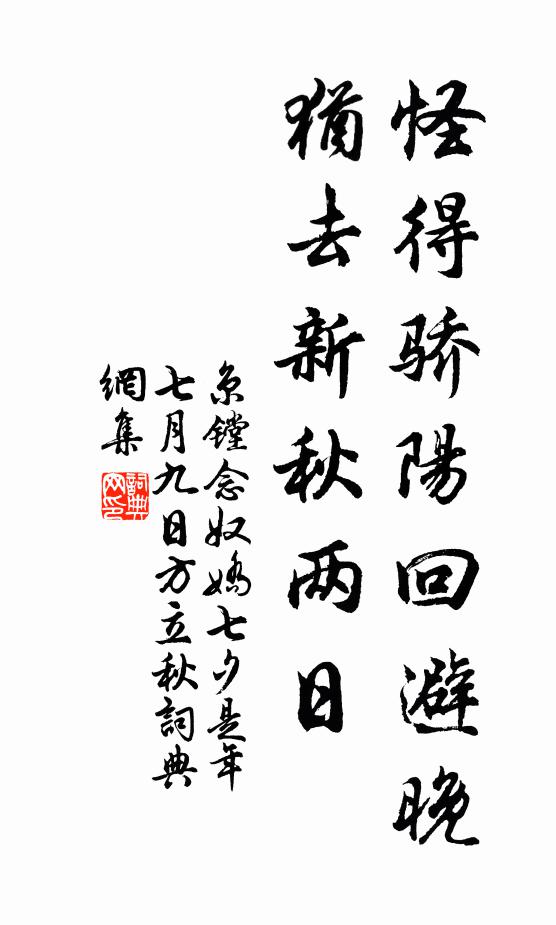 怪得骄陽回避晚
猶去新秋两日
京鏜念奴嬌七夕是年
七月九日方立秋詞典
網集
詞典
网印